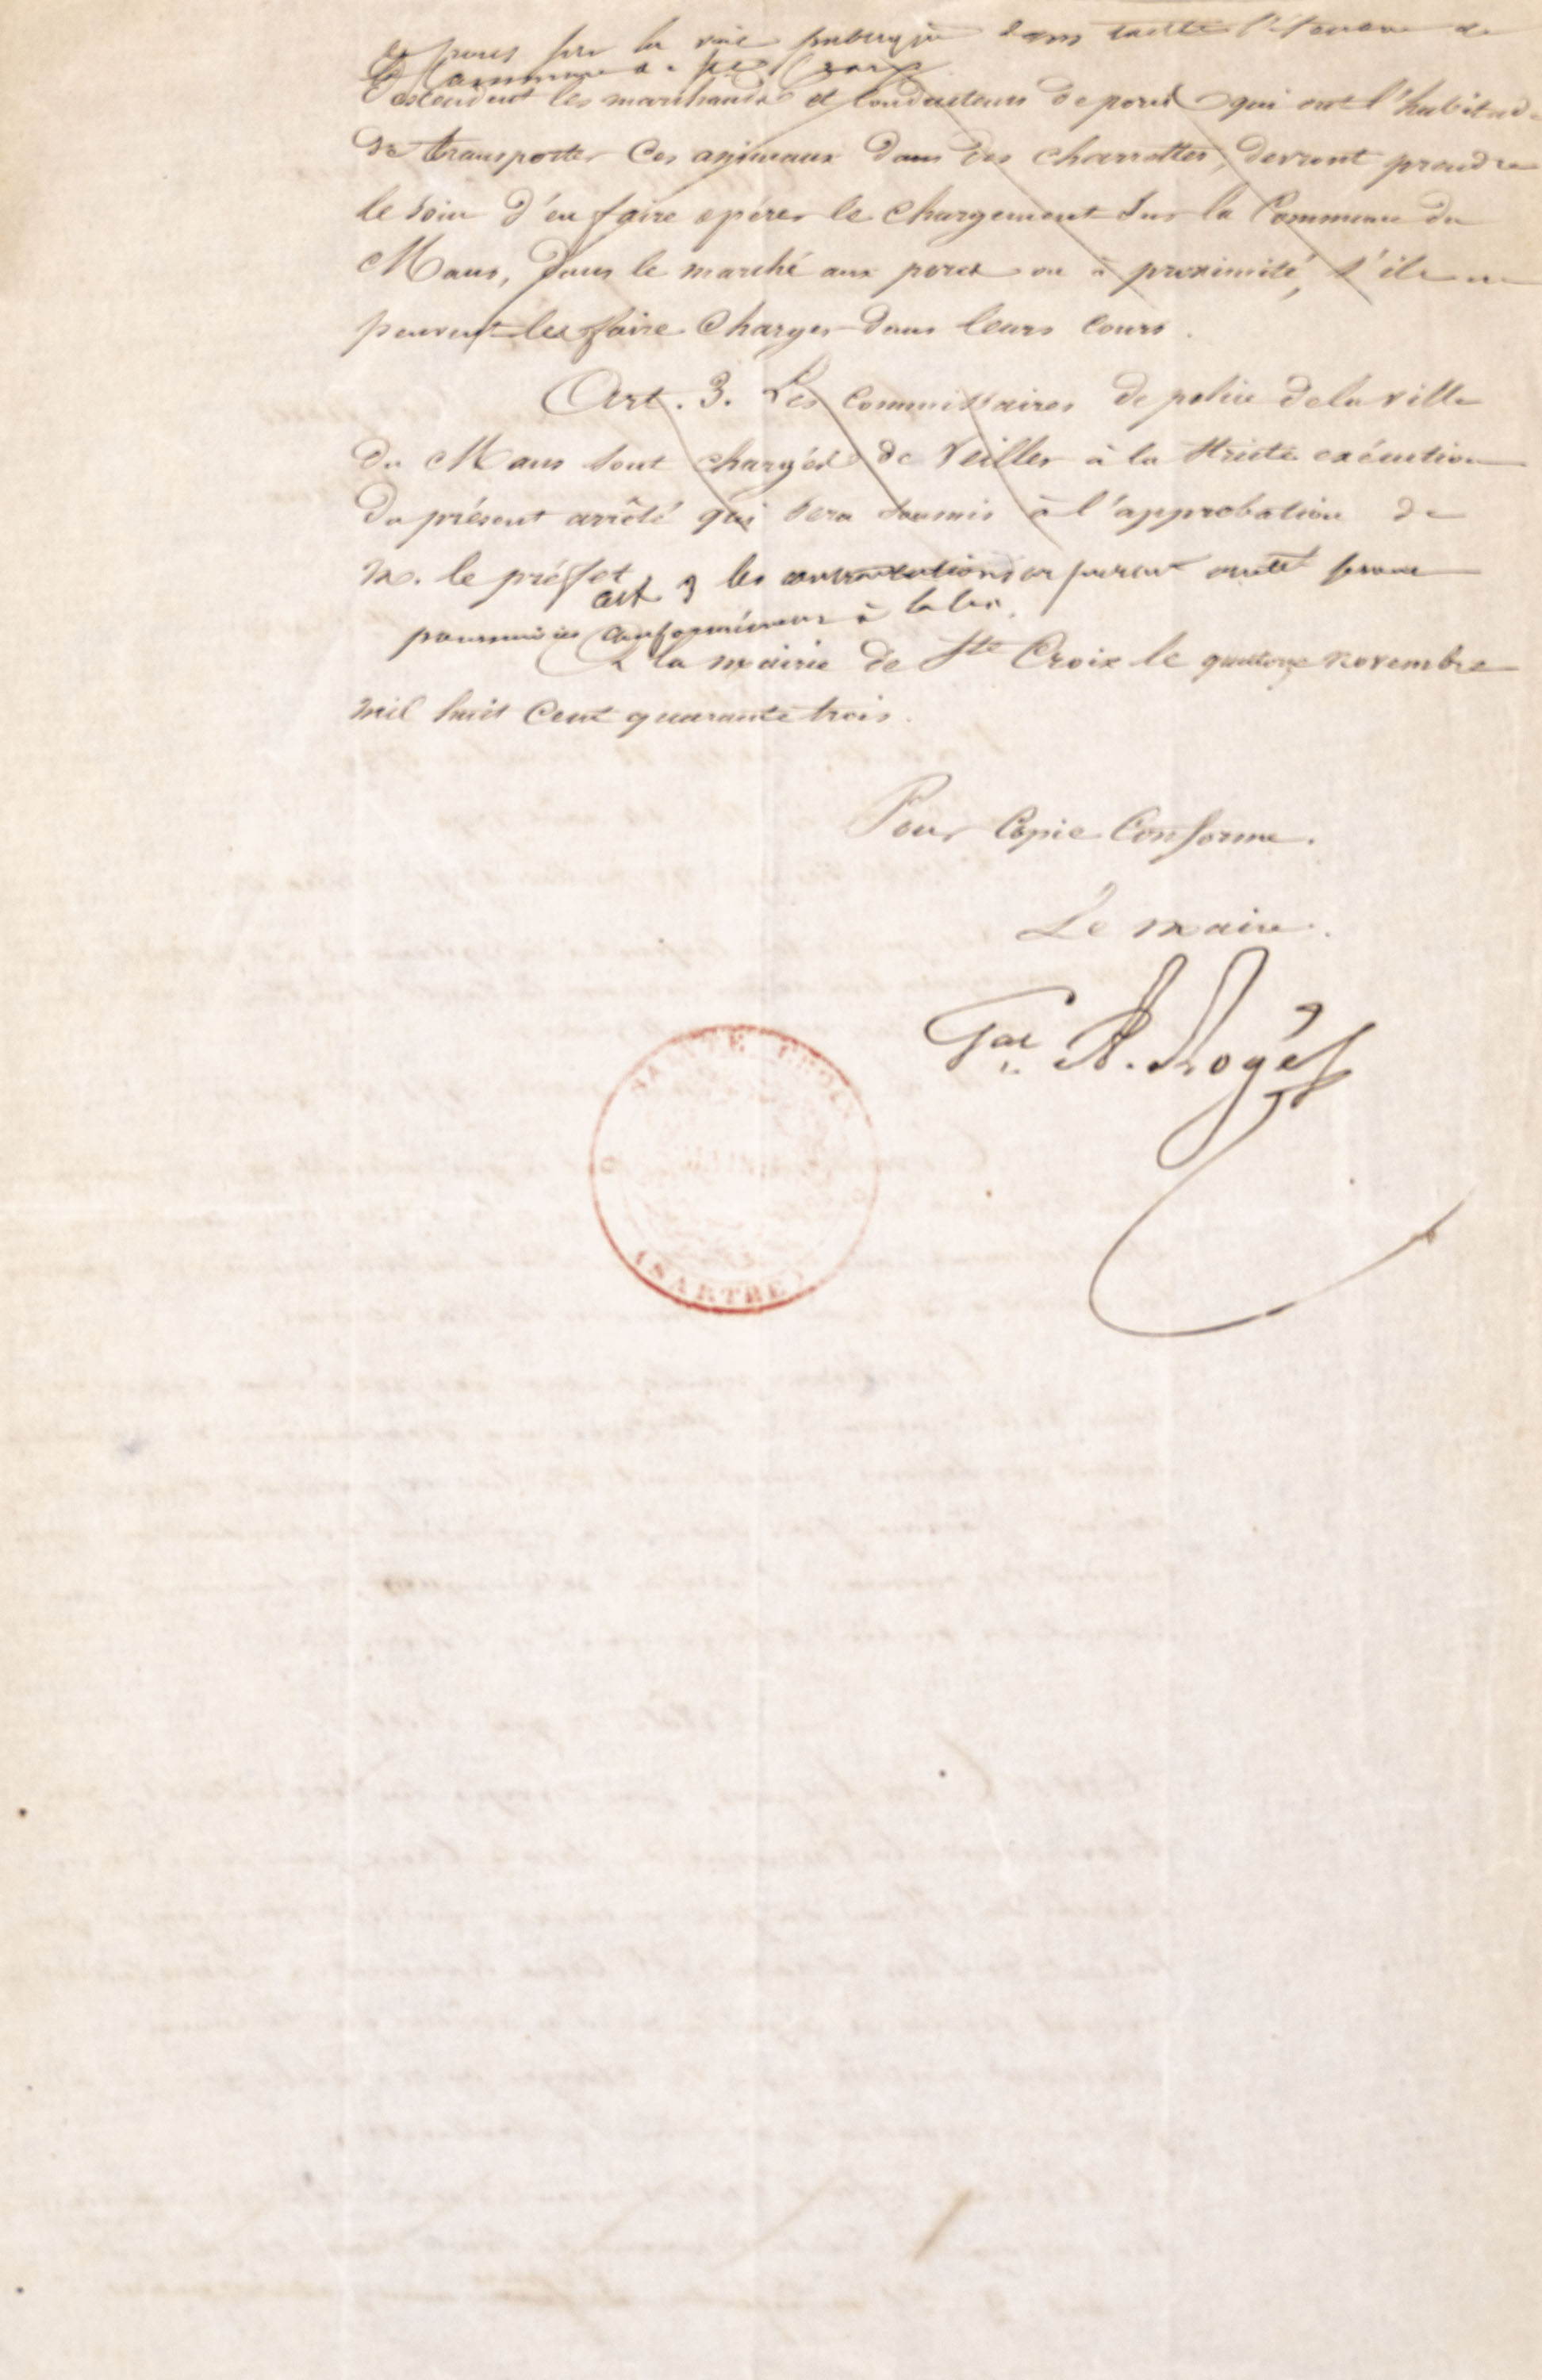 de porcs sur la voie publique dans toute l'étendue de
la Commune de Ste Croix
les marchands et conducteurs de porcs qui ont l'habitude
de transporter ces animaux dans des charrettes, devront prendre
le soin d'en faire opérer le chargement sur la Commune du
Mans, dans le marché aux porcs ou à proximité, s'ils ne
peuvent les faire charger dans leurs cours.
Art. 3. Les commissaires de police de la ville
du Mans sont chargés de veiller à la stricte exécution
du présent arrêté qui sera soumis à l'approbation de
M. le préfet, les contraventions au présent arrêté seront
art 3
poursuivies conformément à la loi.
à la mairie de Ste Croix le quatorze novembre
mil huit cent quarante trois.
Pour Copie Conforme.
Le maire.
A. Rogé
SAINTE CROIX
MAIRIE
(SARTHE)